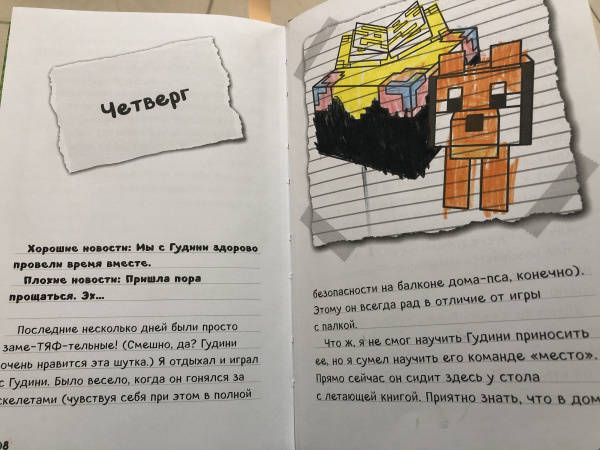 Четверг
Хорошие новости: Мы с Гудини здорово
провели время вместе.
Плохие новости: Пришла пора
прощаться. Эх...
Последние несколько дней были просто
заме-ТЯФ-тельные! (Смешно, да? Гудини
очень нравится эта шутка.) Я отдыхал и играл
с Гудини. Было весело, когда он гонялся за
скелетами (чувствуя себя при этом в полной
безопасности на балконе дома-пса, конечно).
Этому он всегда рад в отличие от игры
с палкой.
Что ж, я не смог научить Гудини приносить
ее, но я сумел научить его команде «место».
Прямо сейчас он сидит здесь у стола
с летающей книгой. Приятно знать, что в дом